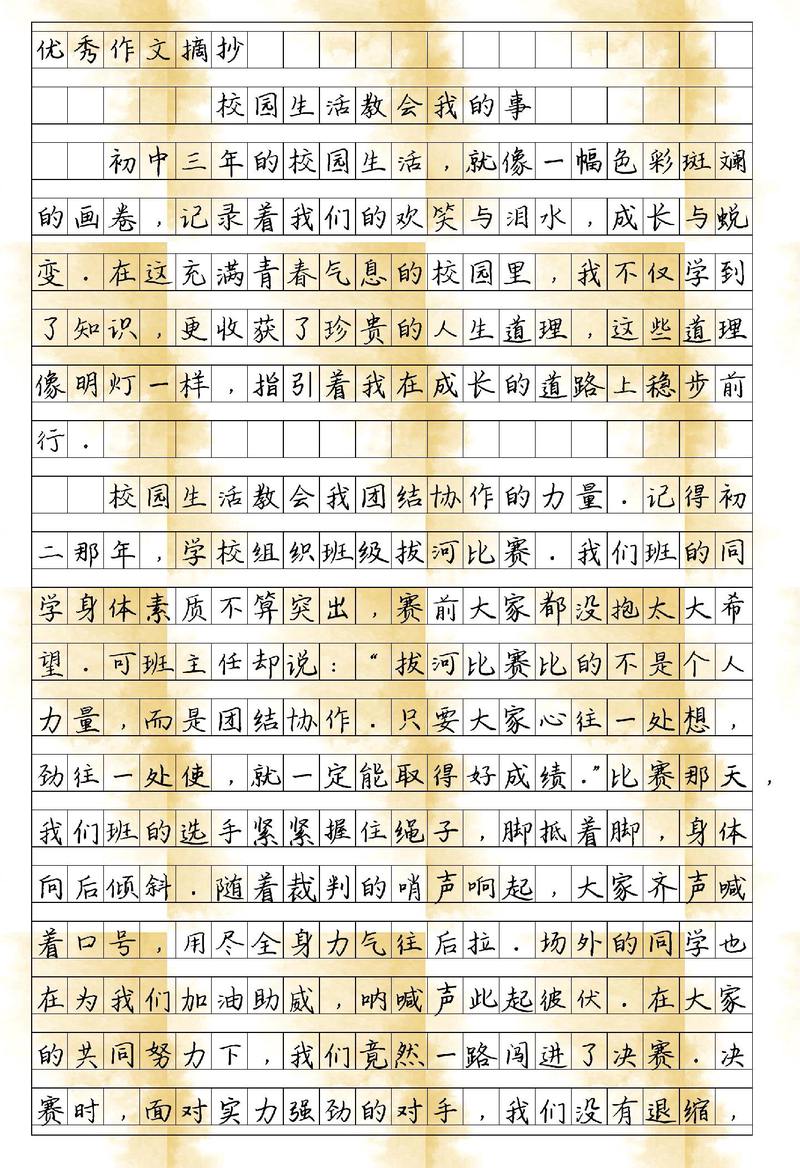 优秀作文摘抄
校园生活教会我的事
初中三年的校园生活，就像一幅色彩斑斓
的画卷，记录着我们的欢笑与泪水，成长与蜕
变．在这充满青春气息的校园里，我不仅学到
了知识，更收获了珍贵的人生道理，这些道理
像明灯一样，指引着我在成长的道路上稳步前
行．
校园生活教会我团结协作的力量．记得初
二那年，学校组织班级拔河比赛．我们班的同
学身体素质不算突出，赛前大家都没抱太大希
望．可班主任却说：“拔河比赛比的不是个人
力量，而是团结协作．只要大家心往一处想，
劲往一处使，就一定能取得好成绩．”比赛那天，
我们班的选手紧紧握住绳子，脚抵着脚，身体
向后倾斜．随着裁判的哨声响起，大家齐声喊
着口号，用尽全身力气往后拉．场外的同学也
在为我们加油助威，呐喊声此起彼伏．在大家
的共同努力下，我们竟然一路闯进了决赛．决
赛时，面对实力强劲的对手，我们没有退缩，